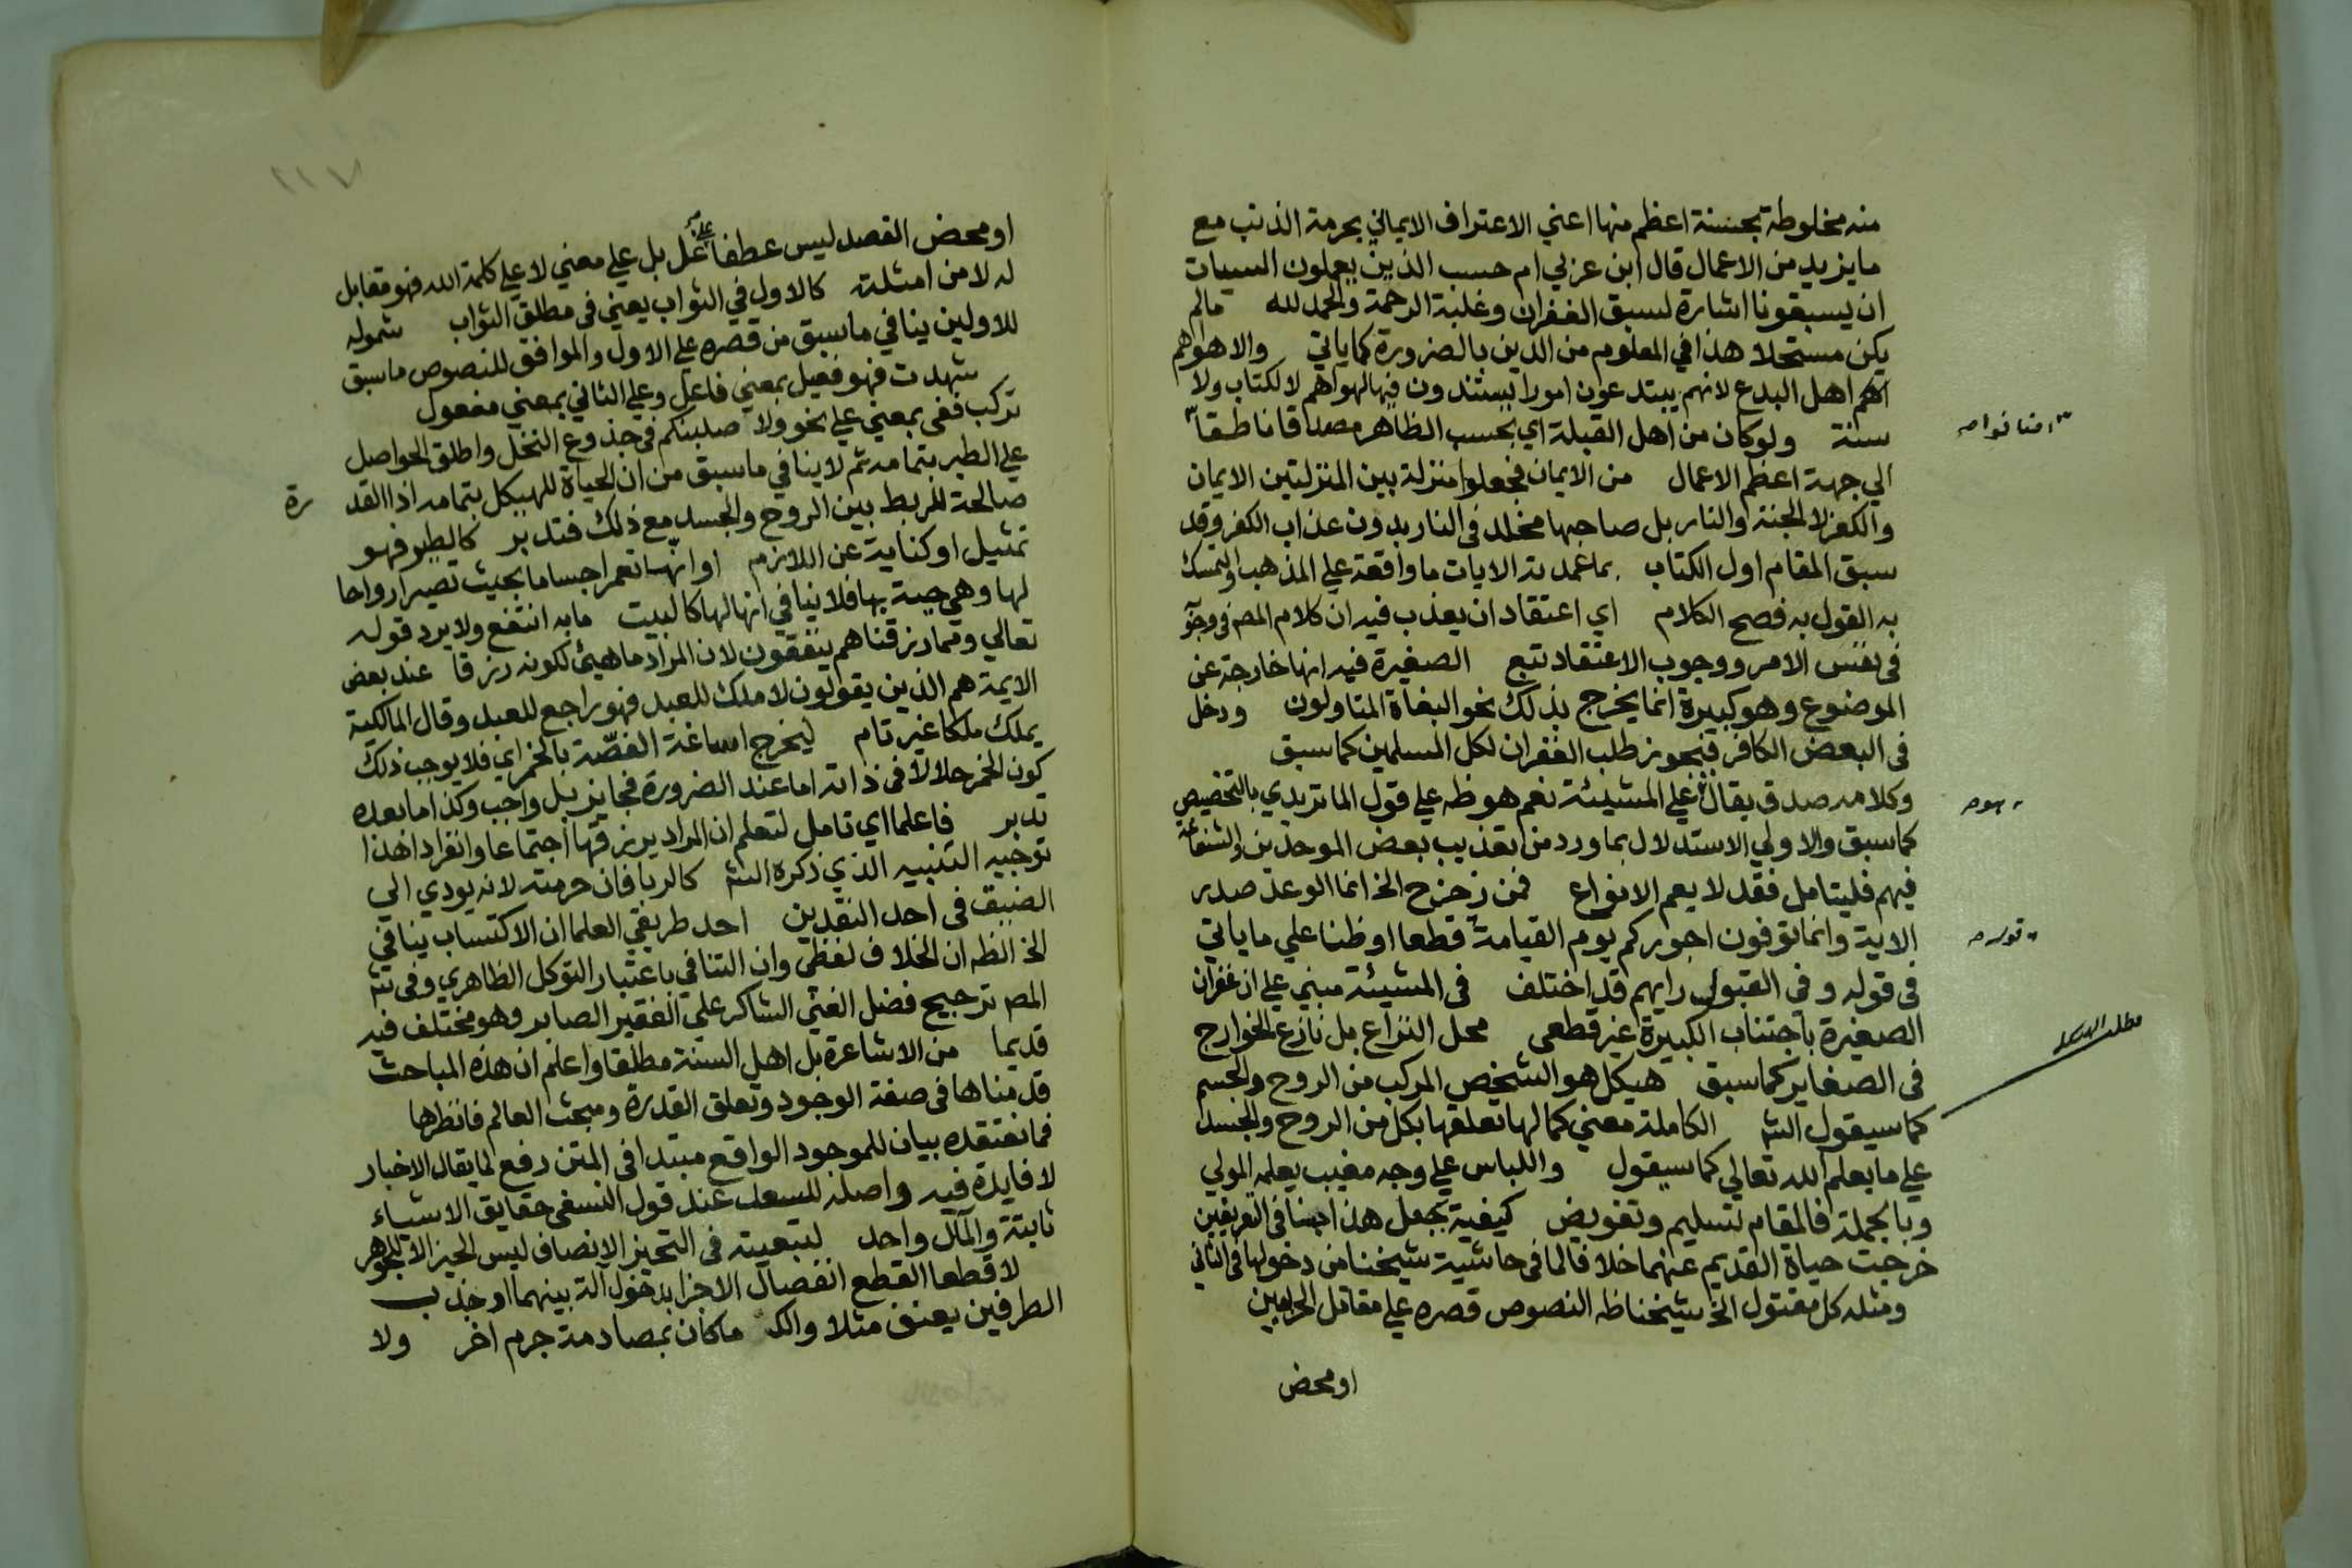 منه مخلوطة بحسنة اعظم منها اعني الاعتراف الايماني بحرمة الذنب مع
ما يزيد من الاعمال قال ابن عربي ام حسب الذين يعملون السيات
ان يسبقونا اشارة لسبق الغفران وغلبة الرحمة والحمد لله مالم
يكن مستحلا هذا في المعلوم من الدين بالضرورة كما ياتي والاهواهم
اهم اهل البدع لانهم يبتدعون امورا يستندون فيها لهواهم لا لكتاب ولا
سنة ولو كان من اهل القبلة اي بحسب الظاهر مصداقا ناطقا
الي جهة اعظم الاعمال من الايمان فجعلوا منزلة بين المنزلتين الايمان
والكفر لا الجنة والنار بل صاحبها مخلد في النار بدون عذاب الكفر وقد
سبق المقام اول الكتاب بما عمدته الايات ما وافقه علي المذهب والتمسك
به القول به فصح الكلام اي اعتقاد ان يعذب فيه ان كلام المص في وجوبه
في نفس الامر ووجوب الاعتقاد تبع الصغيرة فيه انها خارجة عن
الموضوع وهو كبيرة انما يخرج بذلك نحو البغاة المتاولون ودخل
في البعض الكافر فنجوز طلب الغفران لكل المسلمين كما سبق
وكلامه صدق يقال علي المشيئة نعم هو ظه علي قول الماتريدي بالتخصيص
كما سبق والاولي الاستدلال بما ورد من تعذيب بعض الموحدين والشفاعة
فيهم فليتامل فقد لا يعم الانواع فمن زحزح الخ انما الوعد صدر
الاية وانما توفون اجوركم يوم القيامة قطعا او ظنا علي ما ياتي
في قوله وفي القبول رايهم قد اختلف في المشيئة مبني علي ان غفران
الصغيرة باجتناب الكبيرة غير قطعي محل النزاع بل نازع الخوارج
في الصغاير كما سبق هيكل هو الشخص المركب من الروح والجسم
كما سيقول الش الكاملة معني كمالها تعلقها بكل من الروح والجسد
علي ما يعلم الله تعالي كما سيقول واللباس علي وجه مغيب يعلمه المولي
وبالجملة فالمقام تسليم وتفويض كيفية بجعل هذا جنسا في التعريفين
خرجت حياة القديم عنهما خلافا لما في حاشية شيخنا من دخولها في الثاني
ومثله كل مقتول الخ شيخنا ظه النصوص قصره علي مقاتل الحربيين
او محض
قوله صه
او محض القصد ليس عطفا علي عل بل علي معني لا علي كلمة الله فهو مقابل
له لا من امثلته كالاول في الثواب يعني في مطلق الثواب شموله
للاولين ينافي ما سبق من قصره علي الاول والموافق للنصوص ما سبق
شهدت فهو فعيل بمعني فاعل وعلي الثاني بمعني مفعول
تركب ففي بمعني علي نحو ولا صلبنكم في جذوع النخل واطلق الحواصل
علي الطير بتمامه ثم لا ينافي ما سبق من ان الحياة للهيكل بتمامه اذا القد رة
صالحة للربط بين الروح والجسد مع ذلك فتدبر كالطير فهو
تمثيل او كناية عن اللازم او انها تعمر اجساما بحيث تصير ارواحا
لها وهي حية بها فلا ينافي انها لها كالبيت ما به انتفع ولا يرد قوله
تعالي ومما رزقناهم ينفقون لان المراد ما هيئ لكونه رزقا عند بعض
الايمة هم الذين يقولون لا ملك للعبد فهو راجع للعبد وقال المالكية
يملك ملكا غير تام ليخرج اساغة الغصة بالخمر اي فلا يوجب ذلك
كون الخمر حلالا في ذاته اما عند الضرورة فجايز بل واجب وكذا ما بعده
تدبر فاعلما اي تامل لتعلم ان المراد يرزقها اجتماعا وانفرادا هذا
توجيه التنبيه الذي ذكره الش كالربا فان حرمته لانه يودي الي
الضيق في احد النقدين احد طريقي العلما ان الاكتساب ينافي
الخ الظه ان الخلاف لفظي وان التنافي باعتبار التوكل الظاهري وفي ش
المص ترجيح فضل الغني الشاكر علي الفقير الصابر وهو مختلف فيه
قديما من الاشاعرة بل اهل السنة مطلقا واعلم ان هذه المباحث
قدمناها في صفة الوجود وتعلق القدرة ومبحث العالم فانظرها
فما نعتقده بيان للموجود الواقع مبتدا في المتن دفع لما يقال الاخبار
لا فايدة فيه واصله للسعد عند قول النسفي حقايق الاشياء
ثابتة والمآل واحد لتبعيته في التحيز الانصاف ليس الحيز الا للجوهر
لا قطعا القطع انفصال الاجزا بدخول آلة بينهما او جذب
الطرفين بعنف مثلا والك ما كان بمصادمة جرم اخر ولا